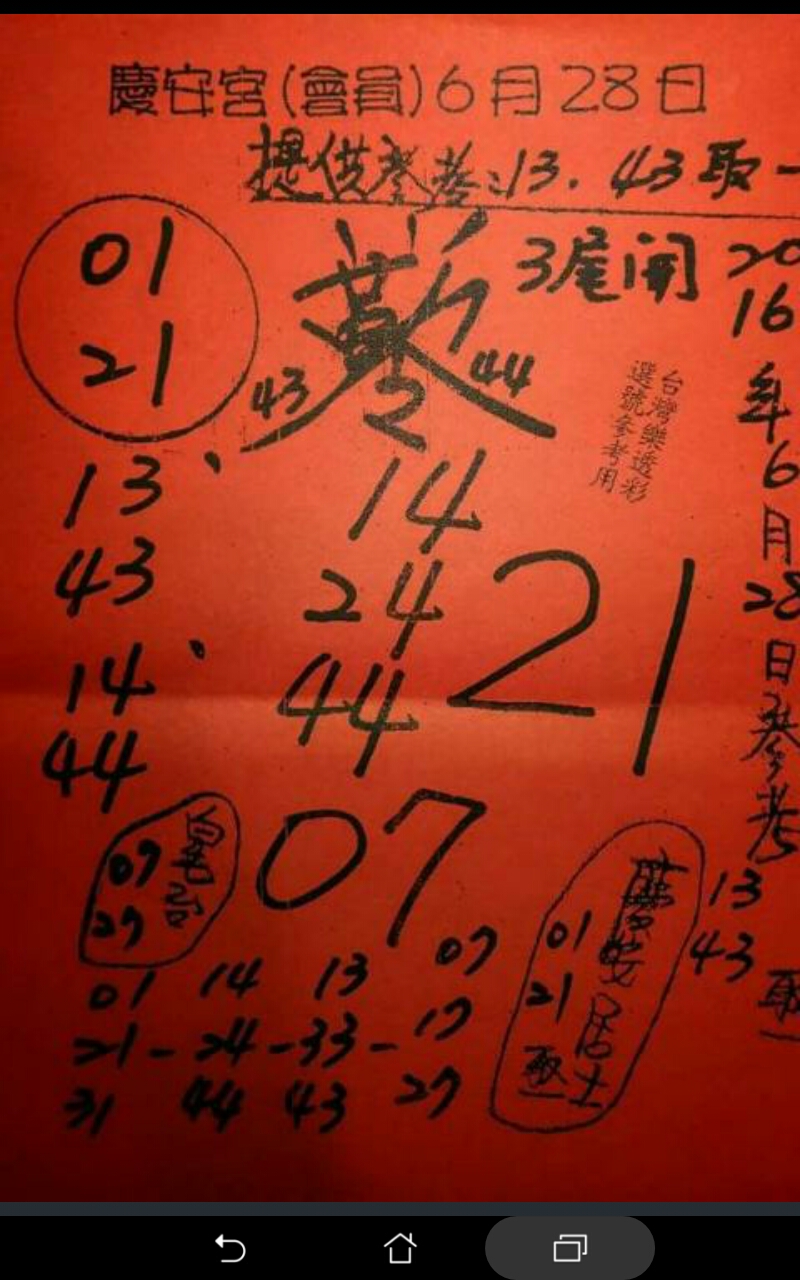 慶安宮(會員)6月28日
提供參考:13.43取一
01
21
3尾開
43
44
台灣樂透彩
選號參考用
2016年6月28日參考
13
43
取一
13、
43
14、
44
14
24
44
21
07
07
27
01 14 13 07
21-24-33-17
31 44 43 27
慶安居士
01
21
取一